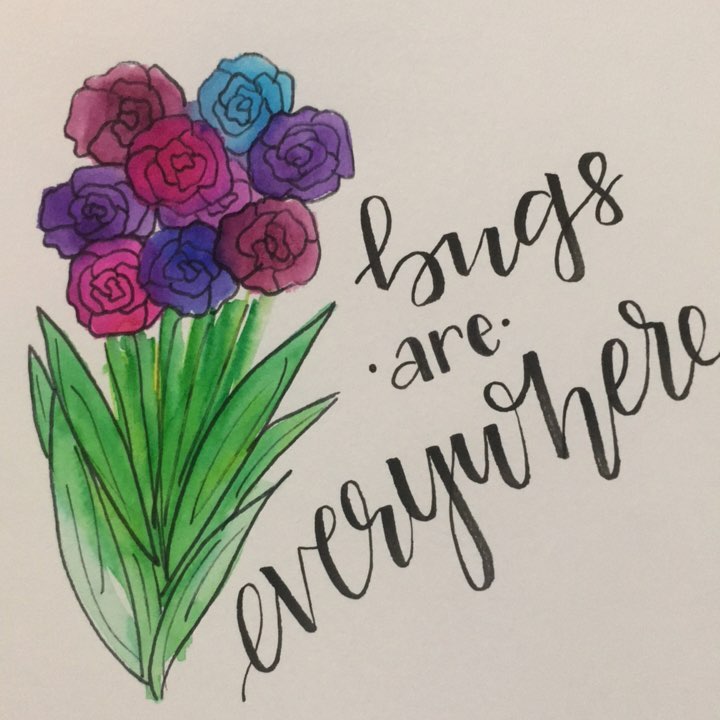 bugs
·are·
everywhere